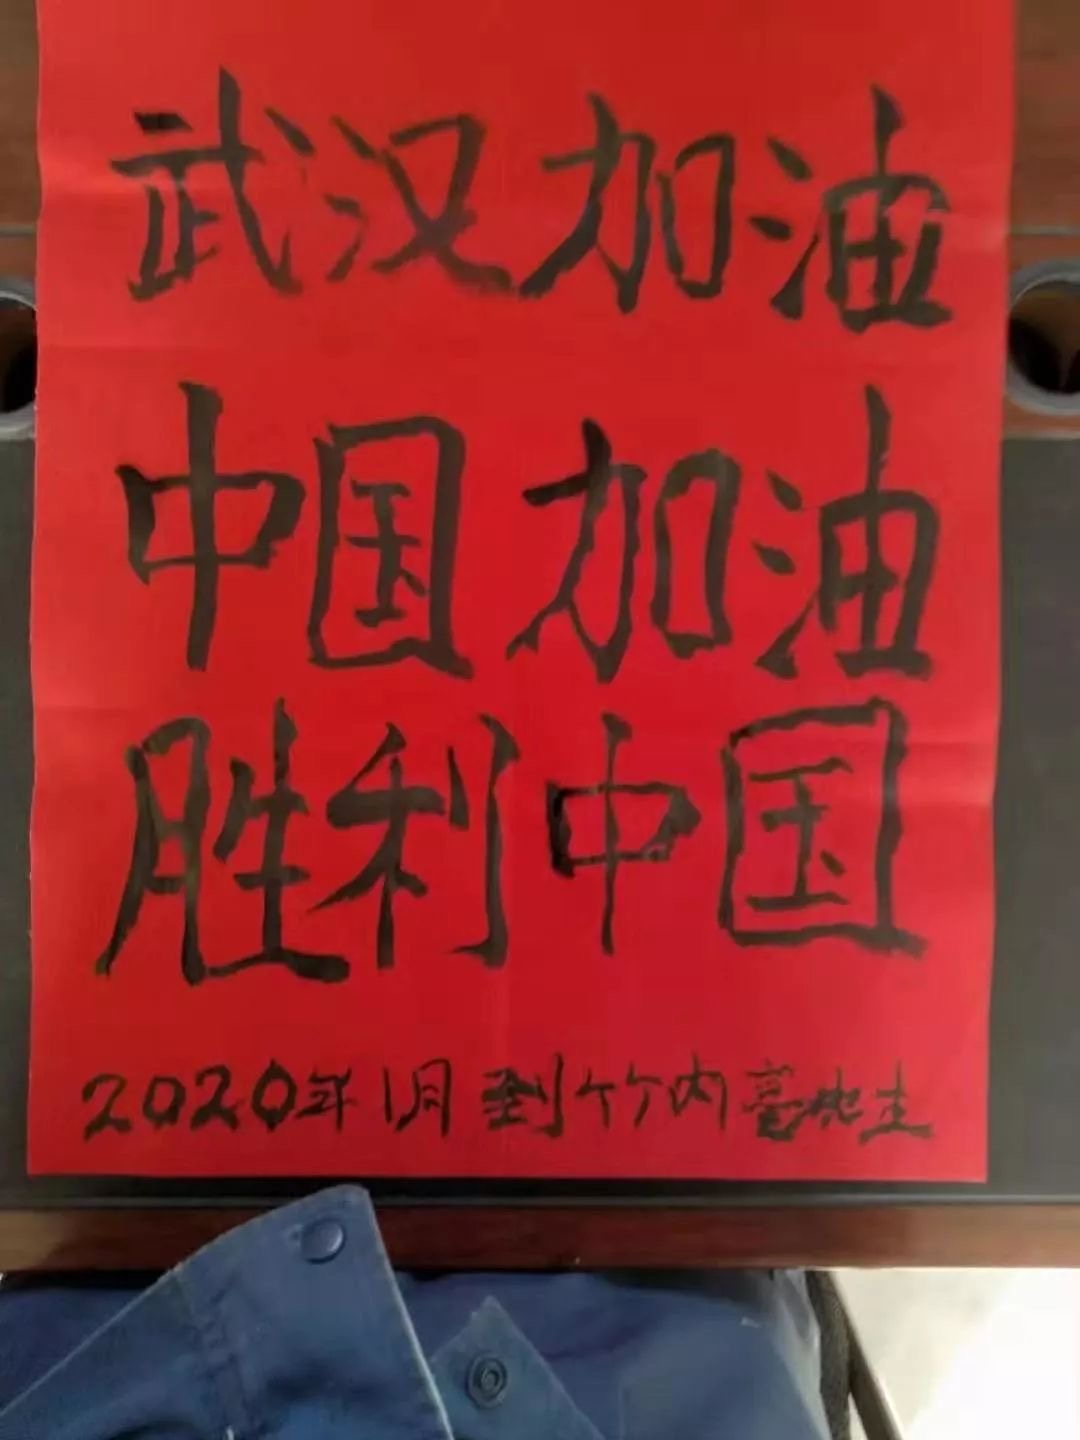 武汉加油
中国加油
胜利中国
2020年1月 到竹内亮